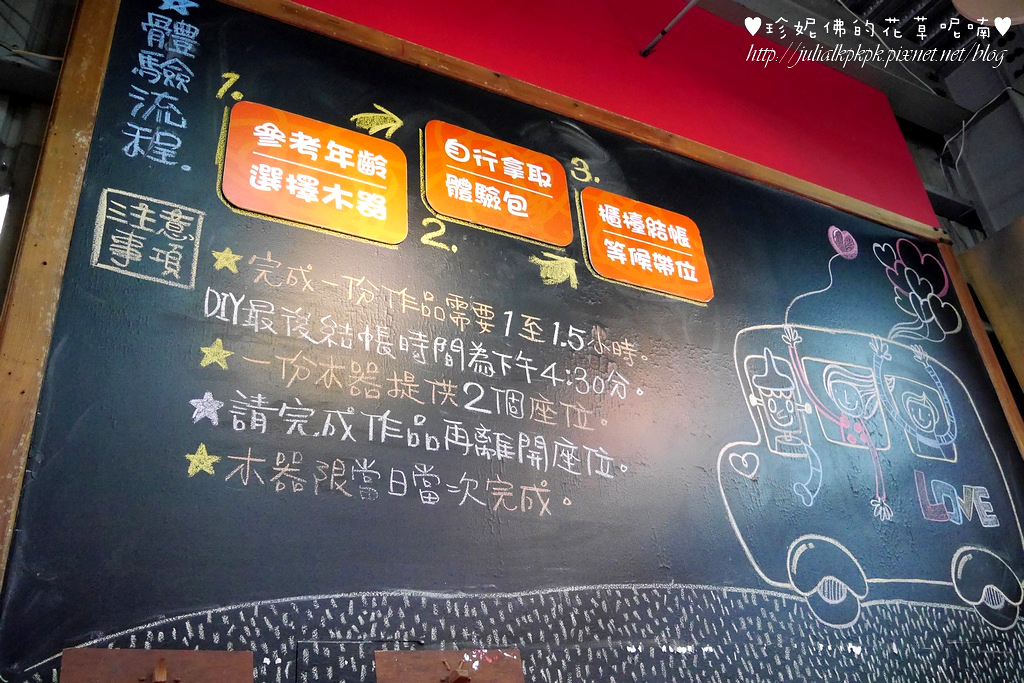 ♥珍妮佛的花草呢喃♥
http://julialkpkpk.pixnet.net/blog
體驗流程.
1.
參考年齡
選擇木器
2.
自行拿取
體驗包
3.
櫃檯結帳
等候帶位
注意
事項
完成一份作品需要1至1.5小時。
DIY最後結帳時間為下午4:30分。
一份木器提供2個座位。
請完成作品再離開座位。
木器限當日當次完成。
LOVE